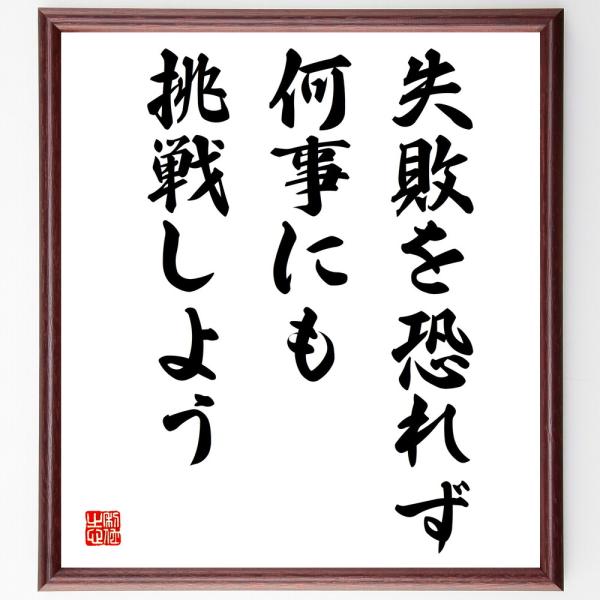 失敗を恐れず
何事にも
挑戦しよう